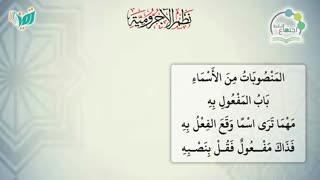 نظم الآجرومية
المَنْصُوبَاتُ مِنَ الأَسْمَاءِ
بَابُ المَفْعُولِ بِهِ
مَهْمَا تَرَى اسْمًا وَقَعَ الفِعْلُ بِهِ
فَذَاكَ مَفْعُولٌ فَقُلْ بِنَصْبِهِ